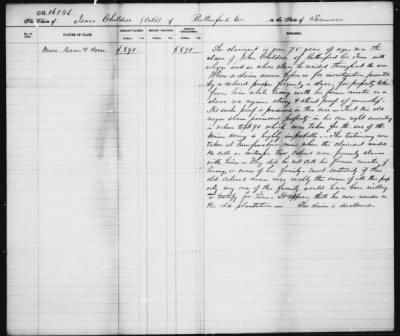 No 16096
The Claim of Isaac Childress (Col'd) of Rutherford Co. in the State of Tennessee
NATURE OF CLAIM.
AMOUNT CLAIMED.
AMOUNT ALLOWED.
AMOUNT DISALLOWED.
REMARKS.
Dollars. Cts. Dollars. Cts. Dollars. Cts.
Mare, Bacon & Corn $590 $590
The claimant is over 75 years of age, was the
slave of John Childress of Rutherford Co. Tenn with
whom and on whose place he resided throughout the war
When a claim comes before us for investigation
by a colored person formerly a slave, for property taken
from him while living with his former master as a
slave we require strong & direct proof of ownership.
No such proof is produced in this case. That this old
negro slave possessed property in his own right
in value to $590 which was taken for the use of the
Union army is highly improbable. The testimony was
taken at Murfreesboro near where the claimant resided
He calls as witnesses two colored men formerly slaves
with him. Why did he not call his former master if
living, or some of his family. Most certainly if this
old colored man was really the owner of all this prop
erty any one of the family would have been willing
to testify for him. It appears that he now resides on
the old plantation. The claim is disallowed.